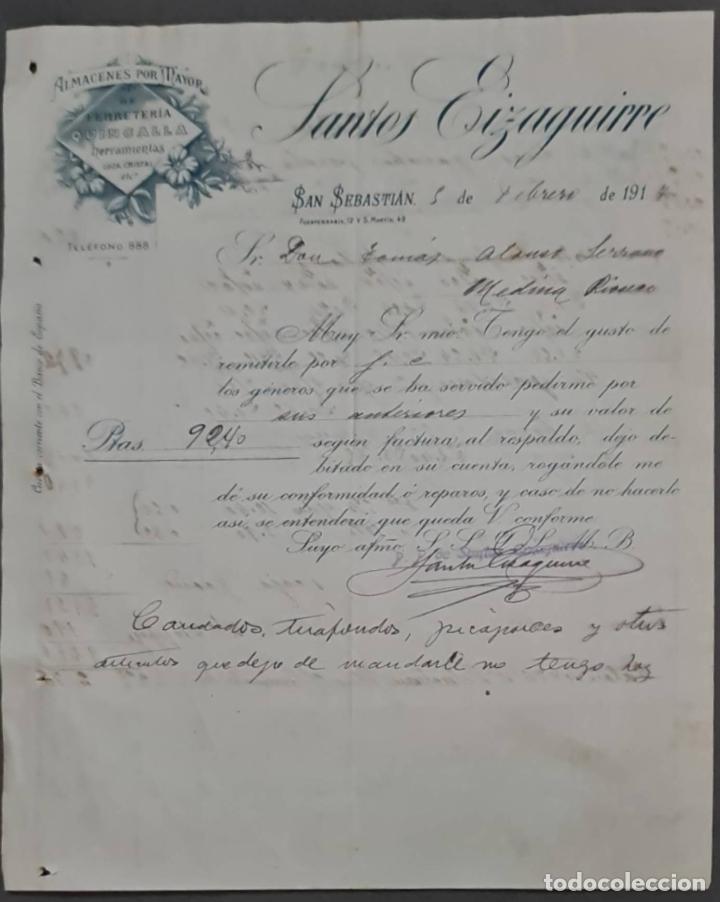 ALMACENES POR MAYOR
DE
FERRETERÍA
QUINCALLA
Herramientas
LOZA, CRISTAL
etc.ª
TELÉFONO 888
Santos Eizaguirre
SAN SEBASTIÁN, 5 de Febrero de 191
FUENTERRABÍA, 12 Y S. MARTÍN, 49
Sr. Don Tomás Alonso Serrano
Medina Rioseco
Cuenta corriente con el Banco de España
Muy Sr. mío: Tengo el gusto de
remitirle por f. c
los géneros que se ha servido pedirme por
sus anteriores y su valor de
Ptas. 92,40 según factura al respaldo, dejo de-
bitado en su cuenta, rogándole me
dé su conformidad ó reparos, y caso de no hacerlo
así, se entenderá que queda V. conforme
Suyo afmo. S. S. Q. S. M. B.
P. P. de
Santos Eizaguirre
Candados, tirafondos, picaportes y otros
artículos que dejo de mandarle no tengo hoy
todocoleccion.net